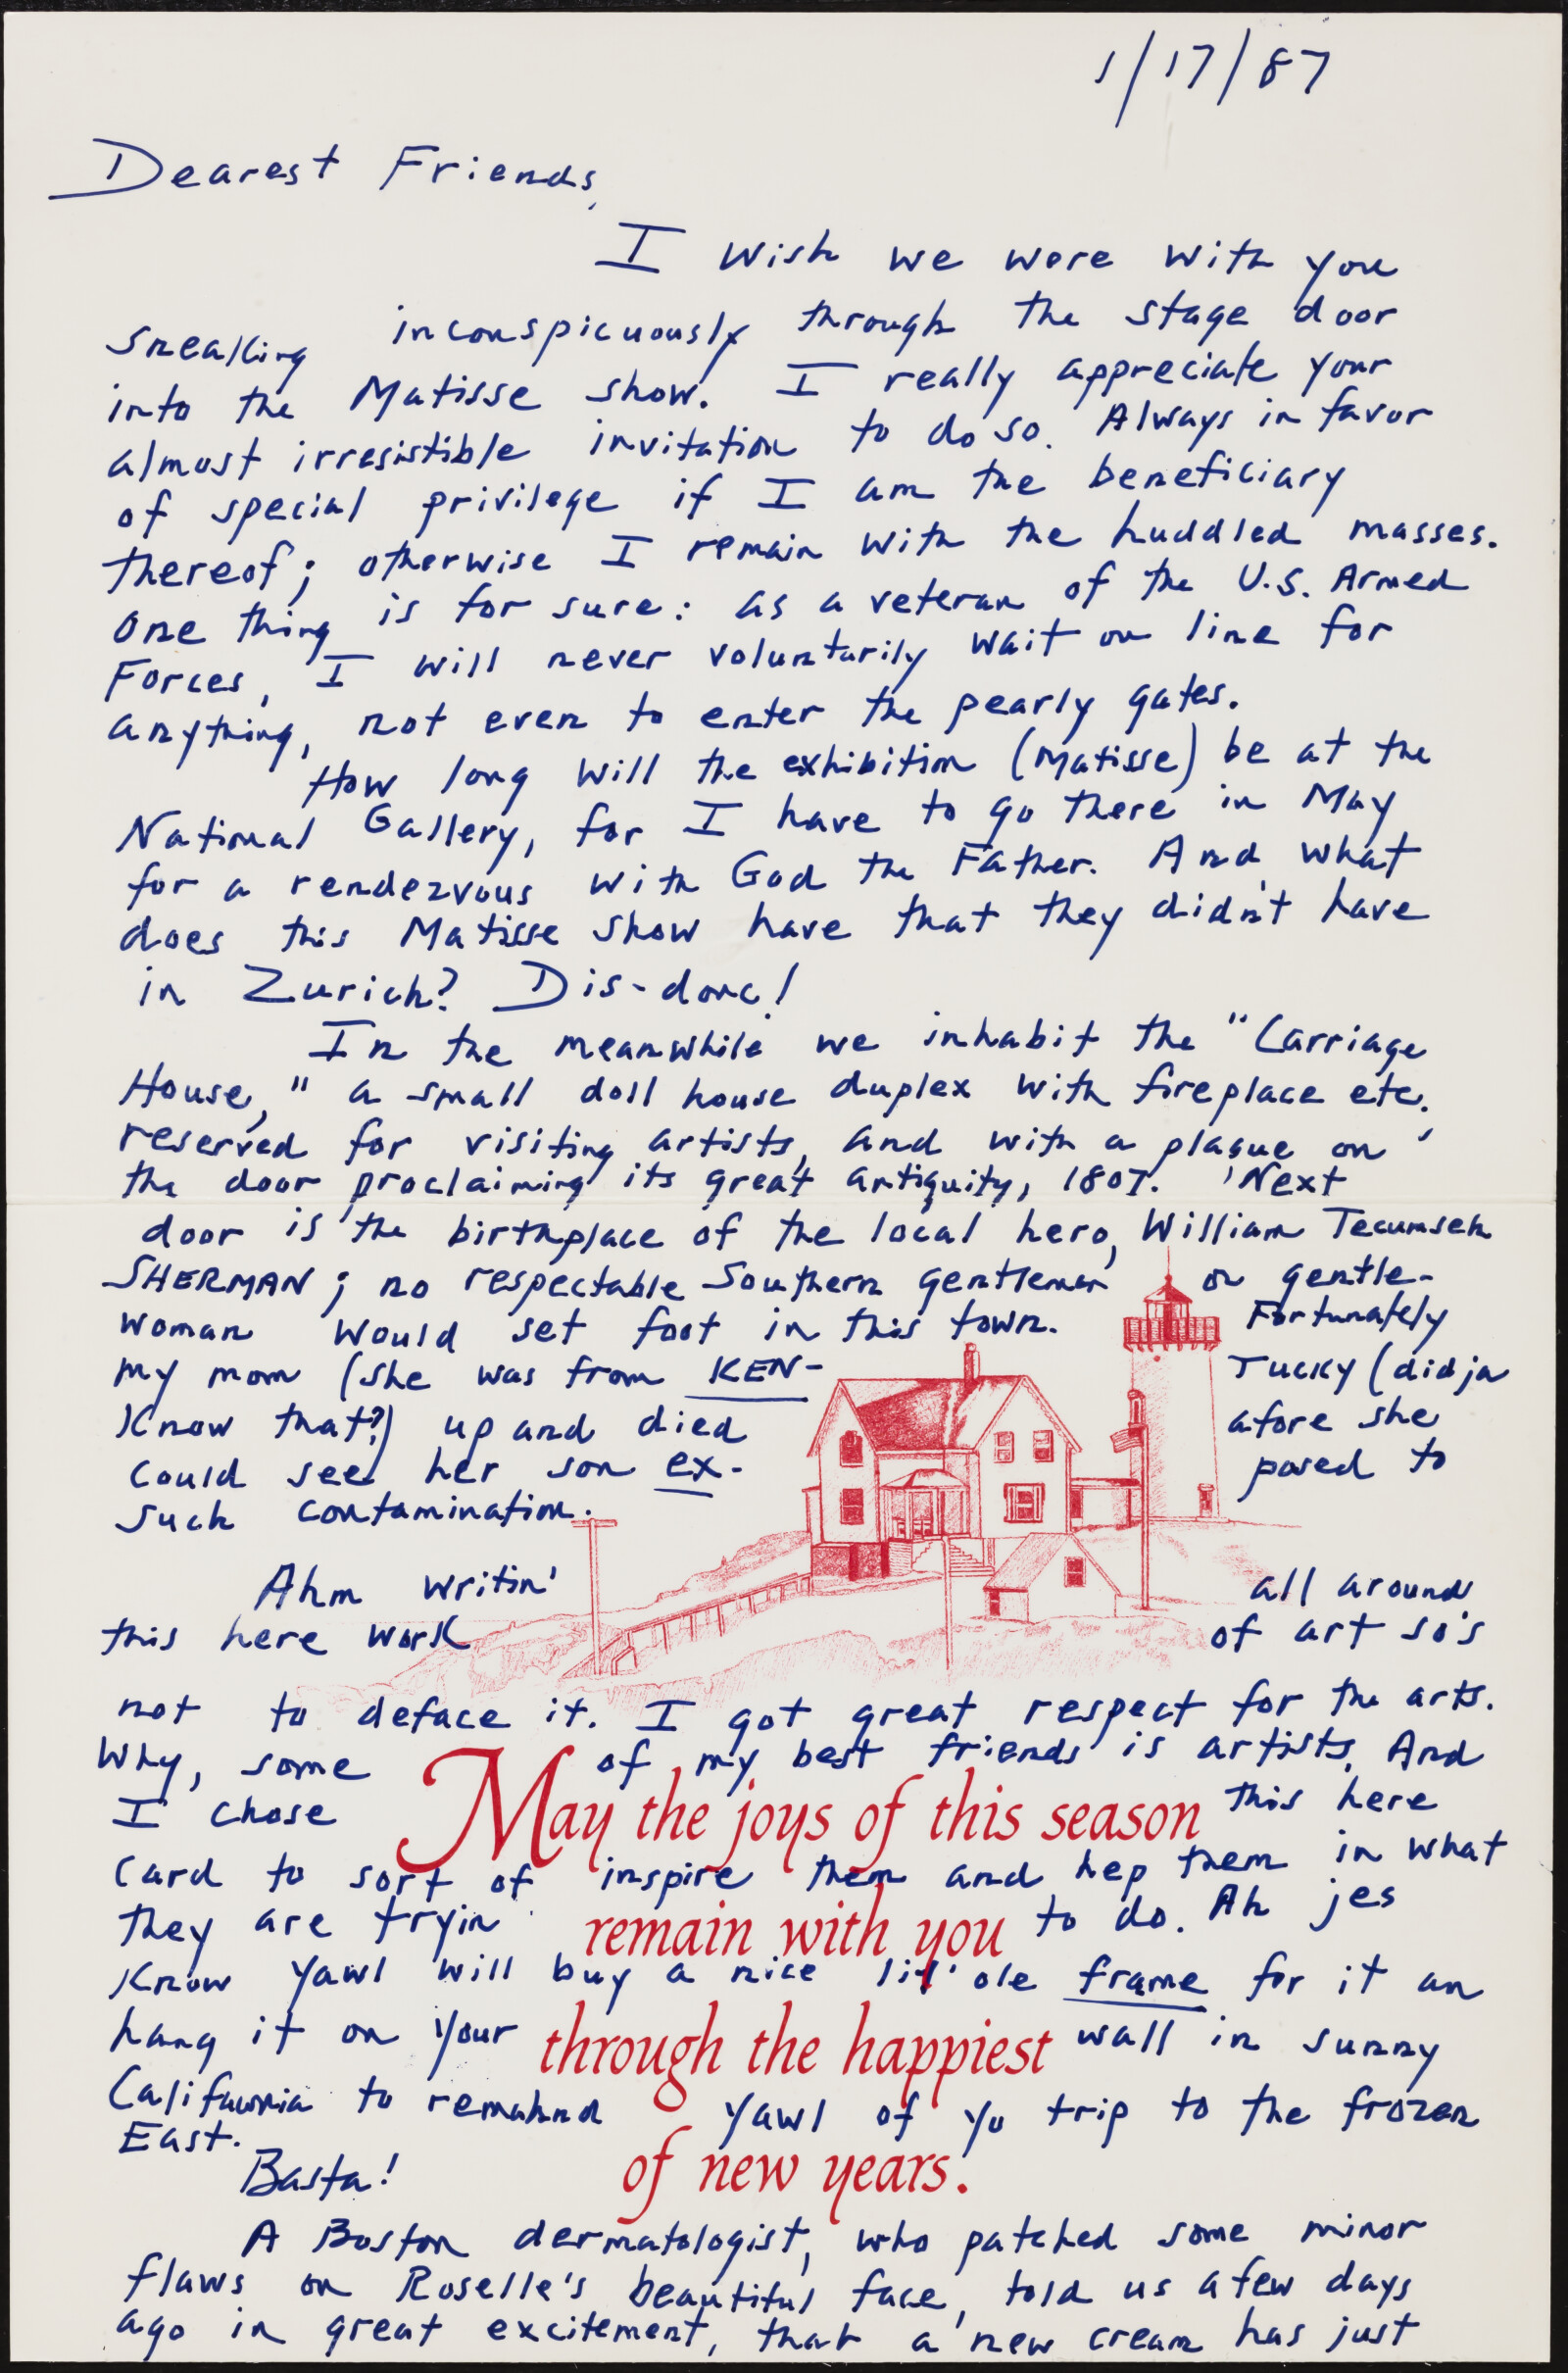 1/17/87
Dearest Friends,
I wish we were with you
sneaking inconspicuously through the stage door
into the Matisse show. I really appreciate your
almost irresistible invitation to do so. Always in favor
of special privilege if I am the beneficiary
thereof; otherwise I remain with the huddled masses.
One thing is for sure: as a veteran of the U.S. Armed
Forces, I will never voluntarily wait on line for
anything, not even to enter the pearly gates.
How long will the exhibition (Matisse) be at the
National Gallery, for I have to go there in May
for a rendezvous with God the Father. And what
does this Matisse show have that they didn't have
in Zurich? Dis-donc!
In the meanwhile we inhabit the "Carriage
House," a small doll house duplex with fireplace etc.,
reserved for visiting artists, and with a plaque on
the door proclaiming its great antiquity, 1807. Next
door is the birthplace of the local hero, William Tecumseh
SHERMAN; no respectable Southern gentleman or gentle-
woman would set foot in this town. Fortunately
my mom (she was from KEN- TUCKY (didja
know that?) up and died afore she
could see her son ex- posed to
such contamination.
Ahm writin' all around
this here work of art so's
not to deface it. I got great respect for the arts.
Why, some of my best friends is artists. And
I chose this here
May the joys of this season
card to sort of inspire them and hep them in what
they are tryin' to do. Ah jes
remain with you
know yawl will buy a nice lit' ole frame for it an
hang it on your wall in sunny
through the happiest
Califawnia to remahnd yawl of yo trip to the frozen
East.
of new years.
Basta!
A Boston dermatologist, who patched some minor
flaws on Roselle's beautiful face, told us a few days
ago in great excitement, that a new cream has just